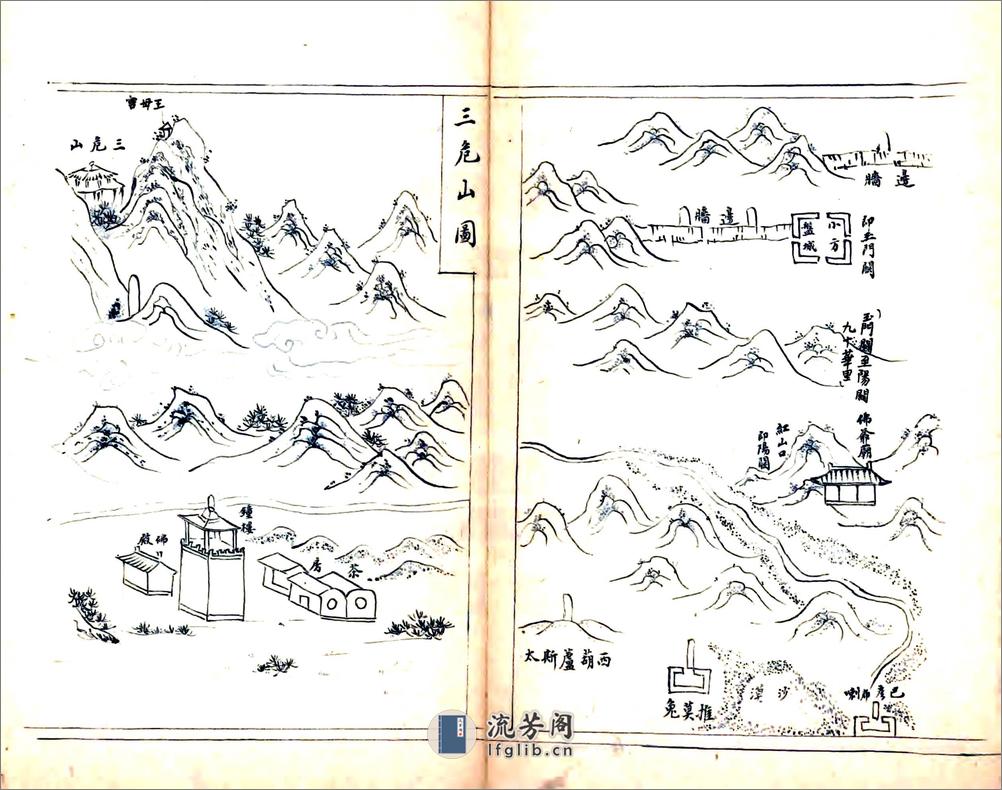 邊牆
邊牆
小方盤城
即玉門關
玉門關至陽關
九十華里
佛爺廟
紅山口
即陽關
西葫蘆斯太
推莫兔
沙漠
三危山圖
王母宮
三危山
鐘樓
佛殿
茶房
流芳阁
lfglib.cn